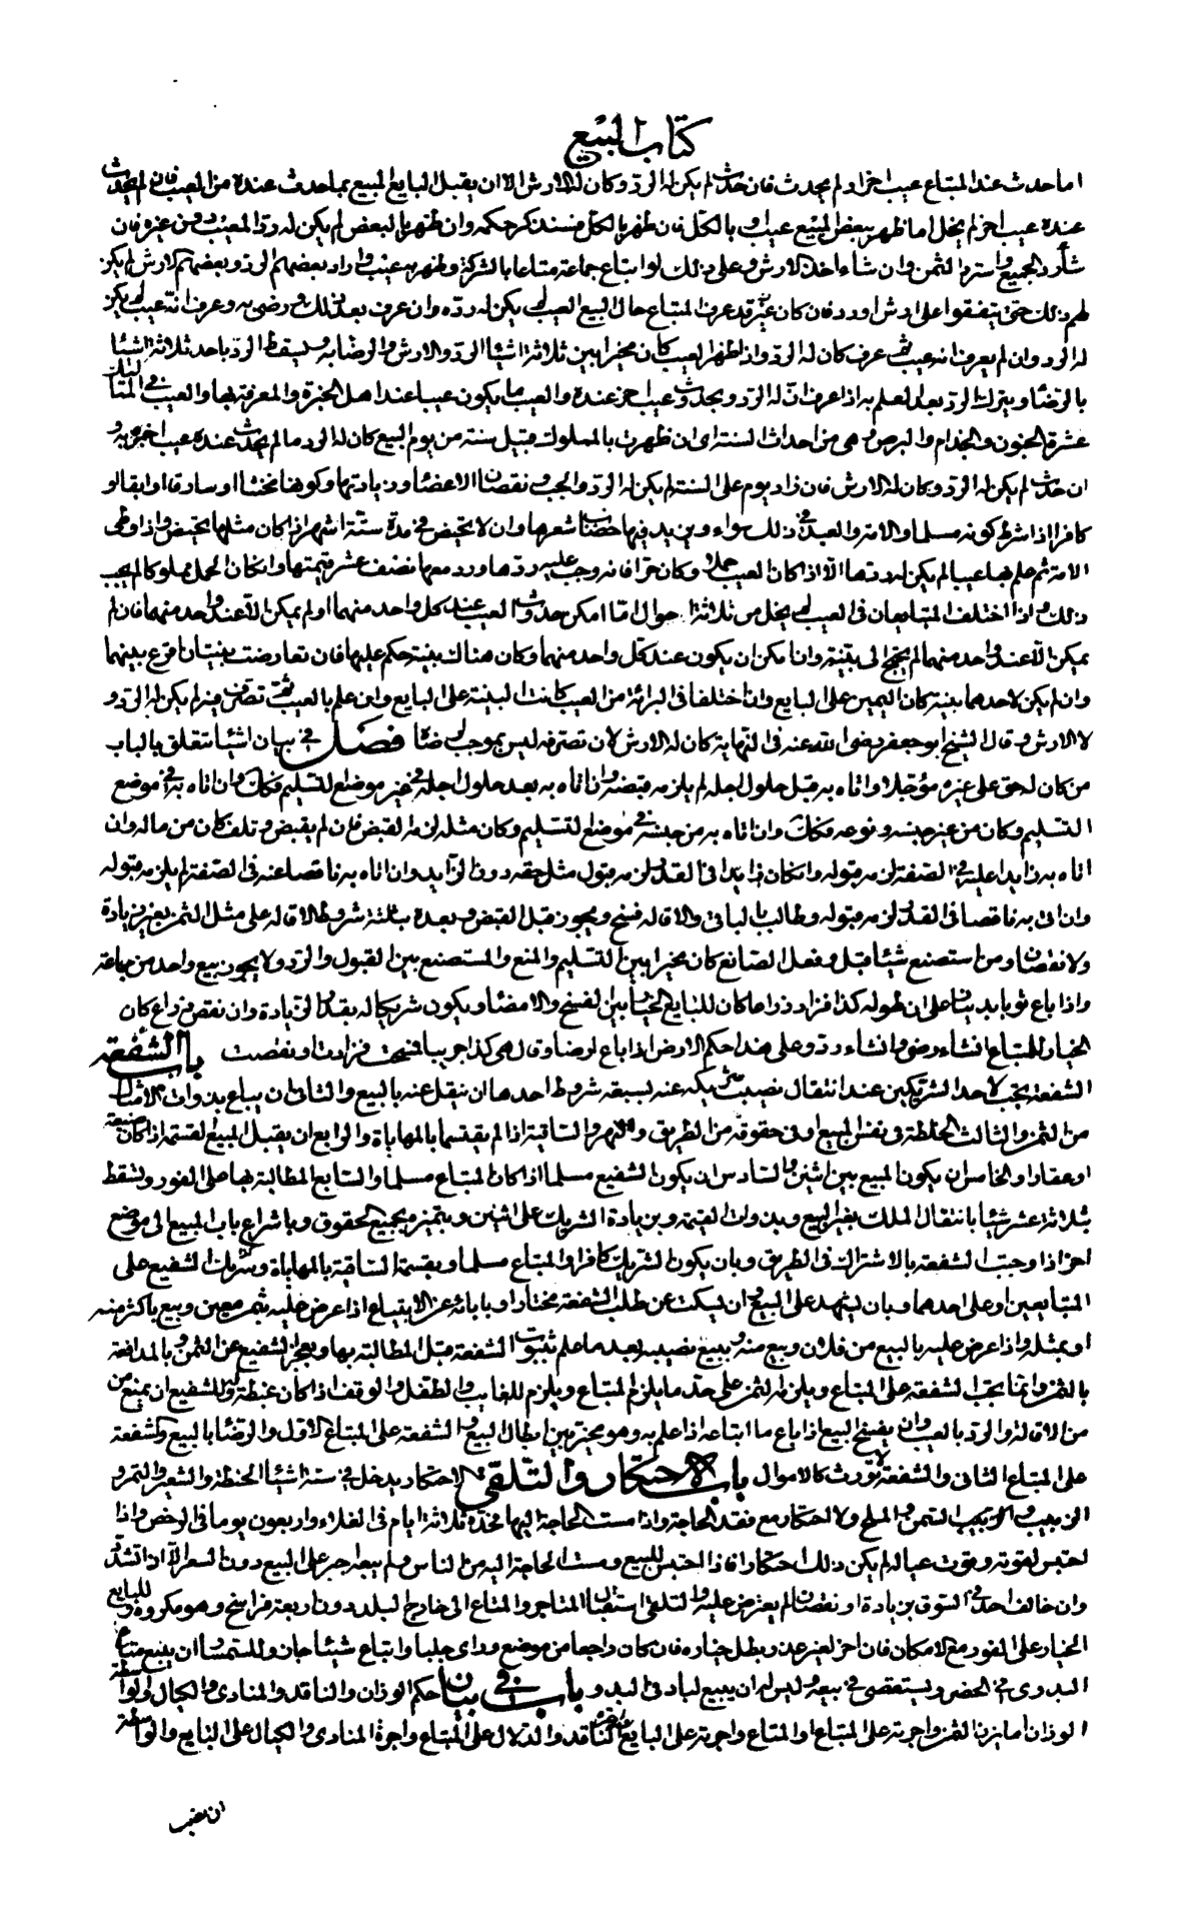 كتاب البيع
اما حدث عند المبتاع عيب اخر اولم يحدث فان حدث لم يكن له الرد وكان له الارش الا ان يقبل البايع المبيع بما حدث عنده من العيب فان لم يحدث
عنده عيب اخر لم يخل اما ظهر ببعض المبيع عيب او بالكل فان ظهر بالكل فسنذكر حكمه وان ظهر بالبعض لم يكن له رد المعيب دون غيره فان
شاء رد الجميع واسترد الثمن وان شاء اخذ الارش وعلى ذلك لو ابتاع جماعة متاعا بالشركة وظهر به عيب واراد بعضهم الرد وبعضهم الارش لم يكن
لهم ذلك حتى يتفقوا على ارش او رد فان كان غير قد عرف المبتاع حال البيع العيب لم يكن له رده وان عرف بعد ذلك ورضى به وعرف انه عيب لم يكن
له الرد وان لم يعرف انه عيب ثم عرف كان له الرد واذا ظهر العيب كان مخيرا بين ثلاثة اشياء الرد والارش والرضا به ويسقط الرد باحد ثلاثة اشياء
بالرضا وبترك الرد بعد العلم به اذا عرف ان له الرد وبحدوث عيب اخر عنده والعيب ما يكون عيبا عند اهل الخبرة والمعرفة بها والعيب في المتاع
عشرة الجنون والجذام والبرص وهى من احداث السنة اى ان ظهرت بالمملوك قبل سنة من يوم البيع كان له الرد ما لم يحدث عنده عيب اخر به و
ان حدث لم يكن له الرد وكان له الارش فان زاد يوم على السنة لم يكن له الرد والجب ونقصان الاعضاء وزيادتها وكونها مخنثا او سارقا او ابقا او
كافرا اذا شرط كونه مسلما والامة والعبد في ذلك سواء ويزيد فيها خضاب شعرها وان لا تحيض في مدة ستة اشهر اذا كان مثلها تحيض واذا وطئ
الامة ثم علم بها عيبا لم يكن له ردها الا اذا كان العيب حملا وكان حرا فانه وجب عليه ردها ورد معها نصف عشر قيمتها وان كان الحمل مملوكا لم يجب
ذلك واذا اختلف المتبايعان في العيب لم يخل من ثلاثة احوال اما امكن حدوث العيب عند كل واحد منهما او لم يمكن الا عند واحد منهما فان لم
يمكن الا عند واحد منهما لم يحتج الى بينة وان امكن ان يكون عند كل واحد منهما وكان هناك بينة حكم عليها فان تعارضت بينتان اقرع بينهما
وان لم يكن لاحدهما بينة كان اليمين على البايع وان اختلفا في البرائة من العيب كانت البينة على البايع وان علم بالعيب ثم تصرف فيه لم يكن له الرد و
لا الارش وقال الشيخ ابو جعفر رضى الله عنه في النهاية كان له الارش لان تصرفه ليس بموجب لرضاه فصل في بيان اشياء تتعلق بالباب
من كان له حق على غيره مؤجلا واتاه به قبل حلول اجله لم يلزمه قبضه وان اتاه به بعد حلول اجله في غير موضع التسليم فكذلك وان اتاه به في موضع
التسليم وكان من غير جنسه ونوعه فكذلك وان اتاه به من جنسه في موضع التسليم وكان مثله لزمه القبض فان لم يقبض وتلف كان من ماله وان
اتاه به زايدا عليه في الصفة لزمه قبوله وان كان زايدا في القدر لزمه قبول مثل حقه دون الزايد وان اتاه به ناقصا عنه في الصفة لم يلزمه قبوله
وان اتى به ناقصا في القدر لزمه قبوله وطالب بالباقى والاقاله فسخ ويجوز قبل القبض وبعده بثلثة شروط الاقاله على مثل الثمن بغير زيادة
ولا نقصان ومن استصنع شيئا قبل وفعل الصانع كان مخيرا بين التسليم والمنع والمستصنع بين القبول والرد ولا يجوز بيع واحد من جماعة
واذا باع ثوبا بدينار على ان طوله كذا فزاد ذراعا كان للبايع الخيار بين الفسخ والامضاء ويكون شريكا له بقدر الزيادة وان نقص ذراع كان
الخيار للمبتاع ان شاء رضى وان شاء رد وعلى هذا حكم الارض اذا باع ارضا وقال هى كذا جريبا فمسحت فزادت او نقصت باب الشفعة
الشفعة تجب لاحد الشريكين عند انتقال نصيب شريكه عنه لسبعة شروط احدها ان ينتقل عنه بالبيع والثانى ان يباع بذوات الامثال
من الثمن والثالث الخلطة في نفس المبيع او في حقوقه من الطريق والنهر والساقية اذا لم يقتسما بالمهاياة والرابع ان يقبل المبيع القسمة اذا كان ضيعة
او عقارا والخامس ان يكون المبيع بين اثنين والسادس ان يكون الشفيع مسلما اذا كان المبتاع مسلما والسابع المطالبة بها على الفور وتسقط
بثلاثة عشر شيئا بانتقال الملك بغير البيع وبذوات القيمة وبزيادة الشريك على اثنين وبتميزه بجميع الحقوق وباشراع باب المبيع الى موضع
اخر اذا وجبت الشفعة بالاشتراك في الطريق وبان يكون الشريك كافرا والمبتاع مسلما وبقسمة الساقية بالمهاياة وبتبريك الشفيع على
المتبايعين او على احدهما وبان يشهد على البيع وان يسكت عن طلب الشفعة مختارا وبابائه عن الابتياع اذا عرض عليه بثمن معين وبيع باكثر منه
او بمثله واذا عرض عليه بالبيع من فلان وبيع منه وببيع نصيبه بعد ما علم ثبوت الشفعة قبل المطالبة بها وبعجز الشفيع عن الثمن وبالمدافعة
بالثمن وانما تجب الشفعة على المبتاع ويلزمه الثمن على حد ما يلزم المبتاع ويلزم للغايب والطفل والوقف اذا كان غبطة له وللشفيع ان يمنع من
من الاقالة والرد بالعيب وان يفسخ البيع اذا باع ما ابتاعه اذا علم به وهو مخير بين ابطال البيع والشفعة على المبتاع الاول والرضا بالبيع والشفعة
على المبتاع الثانى والشفعة لا تورث كالاموال باب الاحتكار والتلقى الاحتكار يدخل في ستة اشياء الحنطة والشعير والتمر و
الزبيب والسمن والملح ولا احتكار مع فقد الحاجة واذا مست الحاجة اليها فحده ثلاثة ايام في الغلاء واربعون يوما في الرخص واذا
احتبس لقوته وقوت عياله لم يكن ذلك احتكارا فاذا احتبس للبيع ومست الحاجة اليه من الناس ولم يبعه جبر على البيع دون السعر الا اذا تشدد
وان خالف احد في السوق بزيادة او نقصان لم يعترض عليه والتلقى استقبال المتاجر والمتاع الى خارج البلد دون اربعة فراسخ وهو مكروه وللبايع
الخيار على الفور مع الامكان فان اخر لغير عذر بطل خياره فان كان راجعا من موضع وراى جلبا وابتاع شيئا جاز وللسمسار ان يبيع متاع
البدوى في الحضر ويستقصى في بيعه وليس له ان يبيع لباد في البدو باب في بيان حكم الوزان والناقد والمنادى والكيال والواسطة
الوزان اما يزن الثمن واجرته على المبتاع او المتاع واجرته على البايع واجرة الناقد والدلال على المبتاع واجرة المنادى والكيال على البايع والواسطة